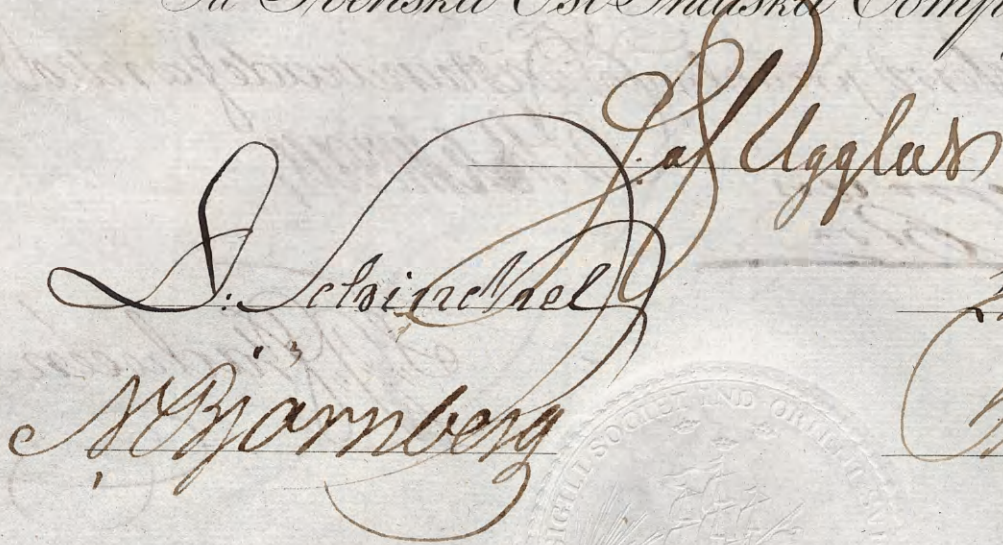 Svenska Ost Indiska Comp
af Ugglas
D. Schinckel
N Björnberg
SIGILL SOCIET IND ORIENT SV